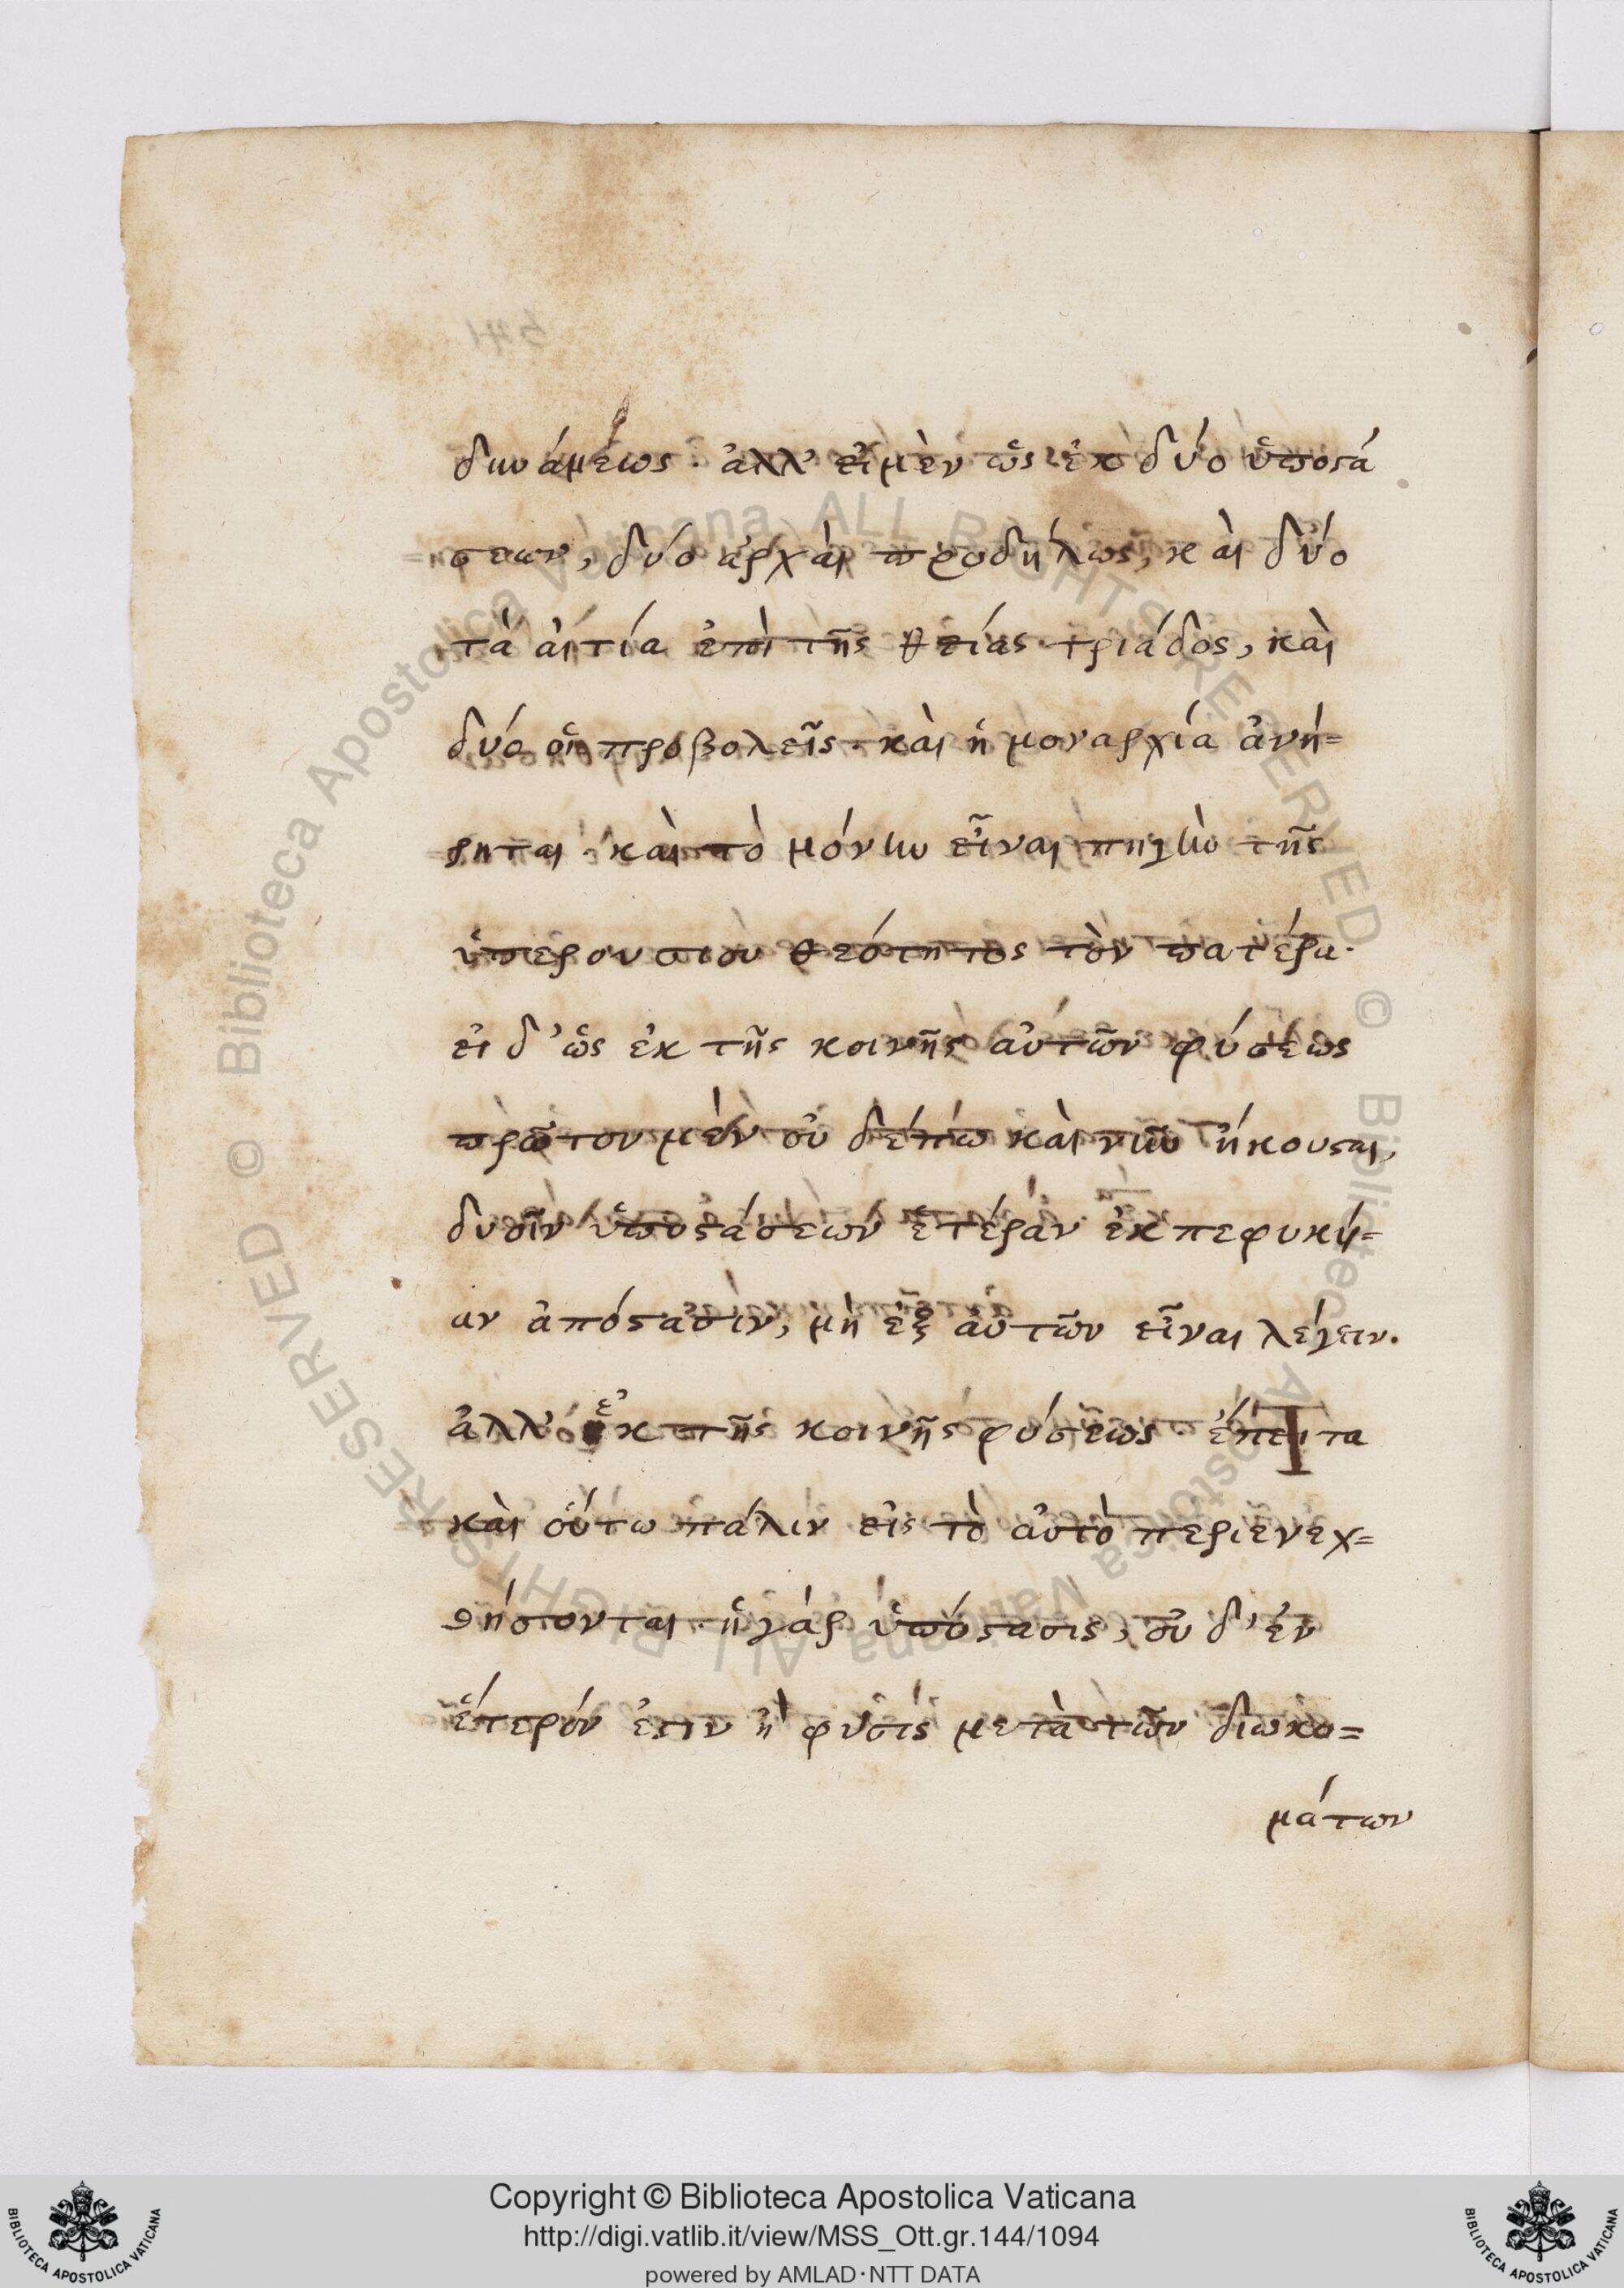 δυνάμεως. ἀλλ' εἰ μὲν ὡς ἐκ δύο ὑποστά
σεων, δύο ἀρχαὶ προδήλως, καὶ δύο
τὰ αἰτία ἐπὶ τῆς θείας τριάδος, καὶ
δύο οἱ προβολεῖς. καὶ ἡ μοναρχία ἀνή=
ρηται. καὶ τὸ μόνην εἶναι πηγὴν τῆς
ὑπερουσίου θεότητος τὸν πατέρα.
εἰ δ' ὡς ἐκ τῆς κοινῆς αὐτῶν φύσεως
πρῶτον μὲν οὐδέπω καὶ νῦν ἤκουσται,
δυσῖν ὑποστάσεων ἑτέραν ἐκπεφυκῦ=
αν ἀπόστασιν, μὴ ἐξ αὐτῶν εἶναι λέγειν.
ἀλλ' ἐκ τῆς κοινῆς φύσεως. ἔπειτα
καὶ οὕτω πάλιν εἰς τὸ αὐτὸ περιενεχ=
θήσονται. ἡ γὰρ ὑπόστασις, οὐδ' ἐν
ἕτερόν ἐστιν ἢ φύσις μετὰ τῶν διωκο=
μάτων
Copyright © Biblioteca Apostolica Vaticana
http://digi.vatlib.it/view/MSS_Ott.gr.144/1094
powered by AMLAD·NTT DATA
BIBLIOTECA APOSTOLICA VATICANA
BIBLIOTECA APOSTOLICA VATICANA
© Biblioteca Apostolica Vaticana ALL RIGHTS RESERVED © Biblioteca Apostolica Vaticana ALL RIGHTS RESERVED